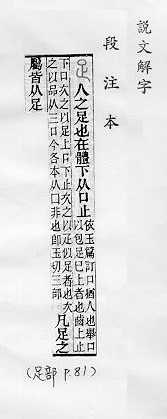 說文解字
段注本
人之足也在體下从口止
依玉篇訂口猶人也舉口
以包足已上者也齒上止
下口次之以足上口下止次之以疋似足者也次
之以品从三口今各本从口非也卽玉切三部
凡足之
屬皆从足
(足部 p81)